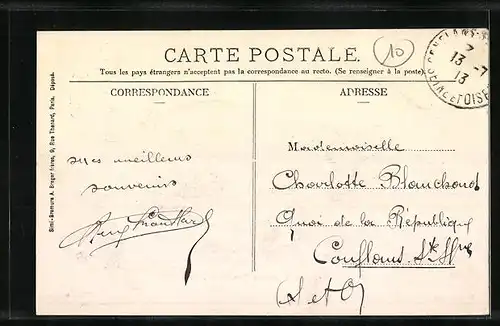 CARTE POSTALE.
10
Tous les pays étrangers n'acceptent pas la correspondance au recto. (Se renseigner à la poste).
CORRESPONDANCE
ADRESSE
CONFLANS-S
7
13 -7
13
SEINE ET OISE
Simi-Bromure A. Breger frères, 9, Rue Thenard, Paris. Déposé.
meilleurs
souvenirs
Mademoiselle
Charlotte Blanchard
Quai de la République
Conflans Ste Hne
(S et O)